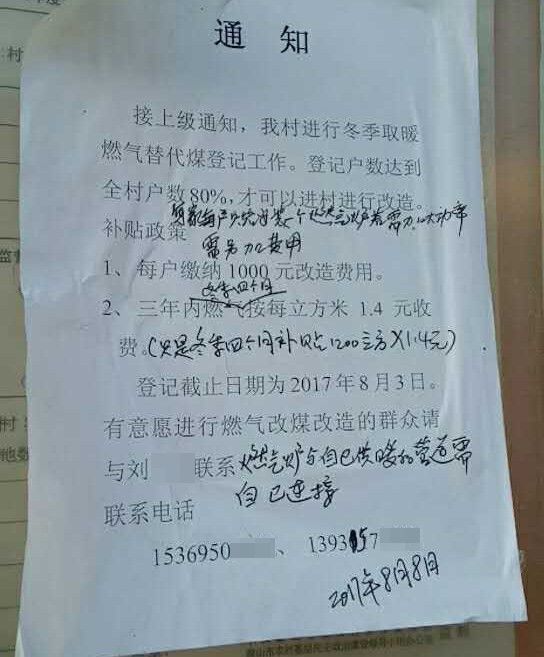 通 知
接上级通知，我村进行冬季取暖
燃气替代煤登记工作。登记户数达到
全村户数80%，才可以进村进行改造。
每户只能安装一个燃气炉若需加大功率
补贴政策
需另加费用
1、每户缴纳 1000 元改造费用。
冬季四个月
2、三年内燃气按每立方米 1.4 元收
费。(只是冬季四个月补贴1200立方X1.4元)
登记截止日期为 2017 年 8 月 3 日。
有意愿进行燃气改煤改造的群众请
与刘 联系 燃气炉与自己供暖的管道需
自己连接
联系电话
1536950 、 1393157
2017年8月8日